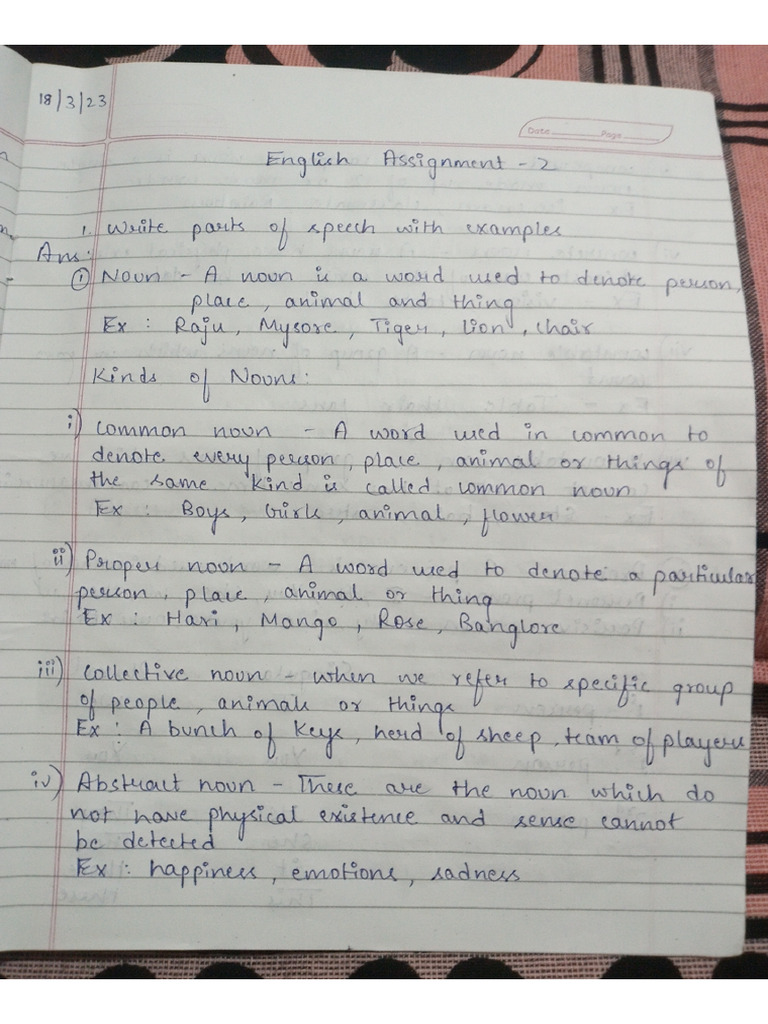 18/3/23
Date Page
English Assignment - 2
1. Write parts of speech with examples
Ans:
① Noun - A noun is a word used to denote person,
place, animal and thing
Ex : Raju, Mysore, Tiger, Lion, chair
Kinds of Nouns:
i) common noun - A word used in common to
denote every person, place, animal or things of
the same kind is called common noun
Ex : Boys, Girls, animal, flower
ii) Proper noun - A word used to denote a particular
person, place, animal or thing
Ex : Hari, Mango, Rose, Banglore
iii) collective noun - when we refer to specific group
of people, animals or things
Ex : A bunch of keys, herd of sheep, team of players
iv) Abstract noun - These are the noun which do
not have physical existence and sense cannot
be detected
Ex : happiness, emotions, sadness